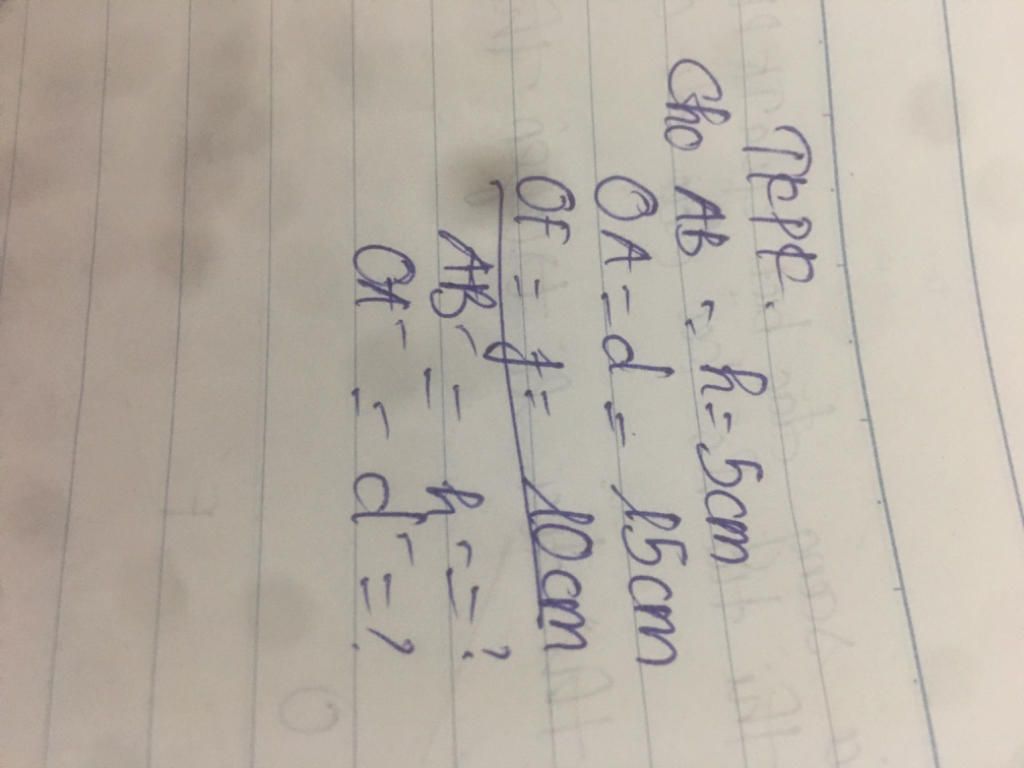 TKPK.
Cho AB = h = 5cm
OA = d = 15cm
OF = f = 10cm
A'B' = h' = ?
OA' = d' = ?